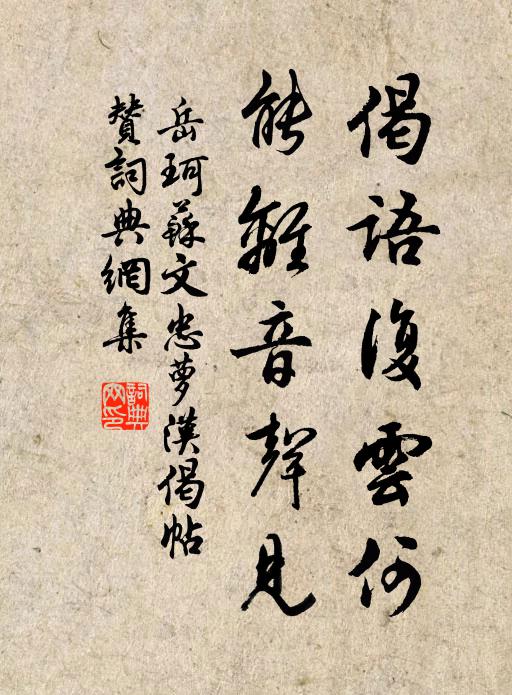 偈語復雲何
能離音聲見
岳珂蘇文忠夢漢偈帖
贊詞典網集
詞典
網印